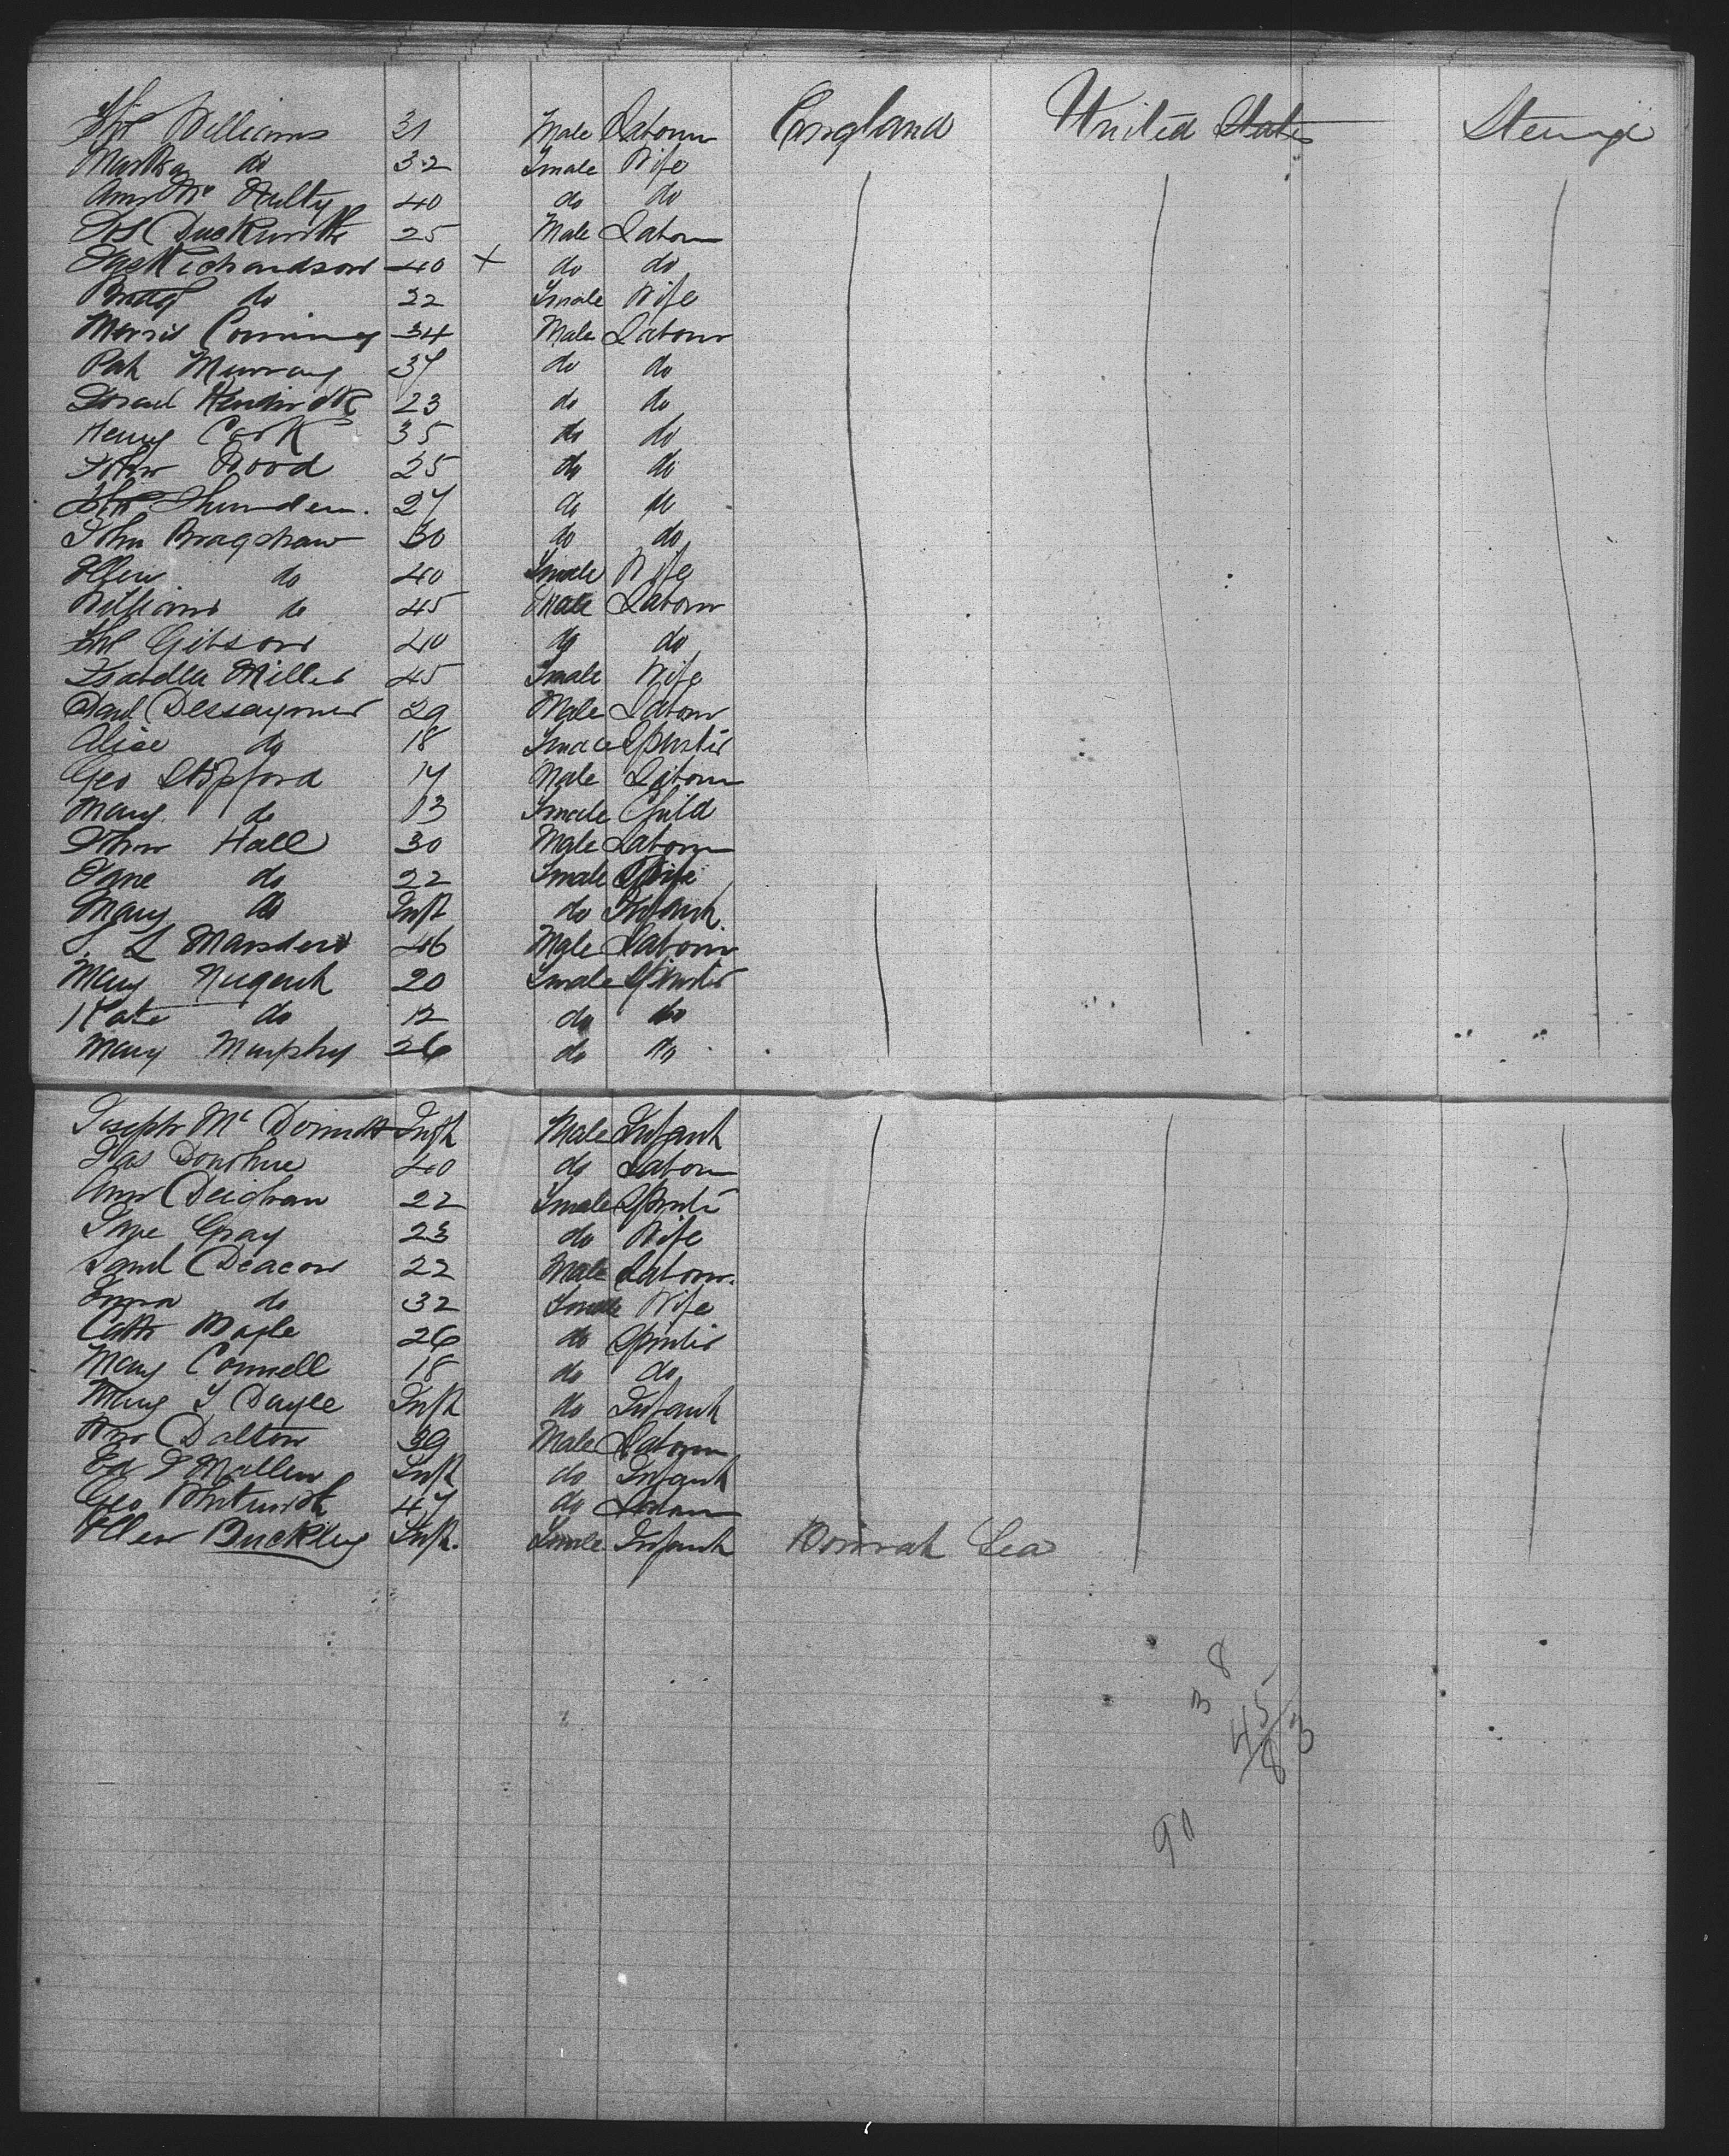 Jno Williams 31 Male Labour England United States Steerage
Martha do 32 Fmale Wife
Ann Mc Nulty 40 do do
Jos Duckworth 25 Male Labour
Jas Richardson 40 + do do
Bridg do 22 Fmale Wife
Morris Comming 34 Male Labour
Pat Murray 37 do do
Israel 23 do do
Henry Cook 35 do do
John Wood 25 do do
Jno 27 do do
John Bragshaw 30 do do
Ellen do 40 Fmale Wife
William do 45 Male Labour
Jno Gibson 40 do do
Isabella Miller 45 Fmale Wife
29 Male Labour
Alice do 18 Fmale Spinster
Geo Stopford 17 Male Labour
Mary do 13 Fmale Child
John Hall 30 Male Labour
Jane do 22 Fmale Wife
Mary do Inft do Infant
J. L Marsden 46 Male Labour
Mary Nugent 20 Fmale Spinster
Kate do 12 do do
Mary Murphy 26 do do
Joseph Mc Inft Male Infant
Jas Donohue 40 do Labour
Ann Deighan 22 Fmale Spinster
Jane Gray 23 do Wife
Saml Deacon 22 Male Labour
Emma do 32 Fmale Wife
Cath 26 do Spinster
Mary Connell 18 do do
Mary J Doyle Inft do Infant
Wm Dalton 39 Male Labour
Ed Mallen Inft do Infant
Geo Whitworth 47 do Labour
Ellen Buckley Inft. Fmale Infant Born at Sea
38
45
83
90